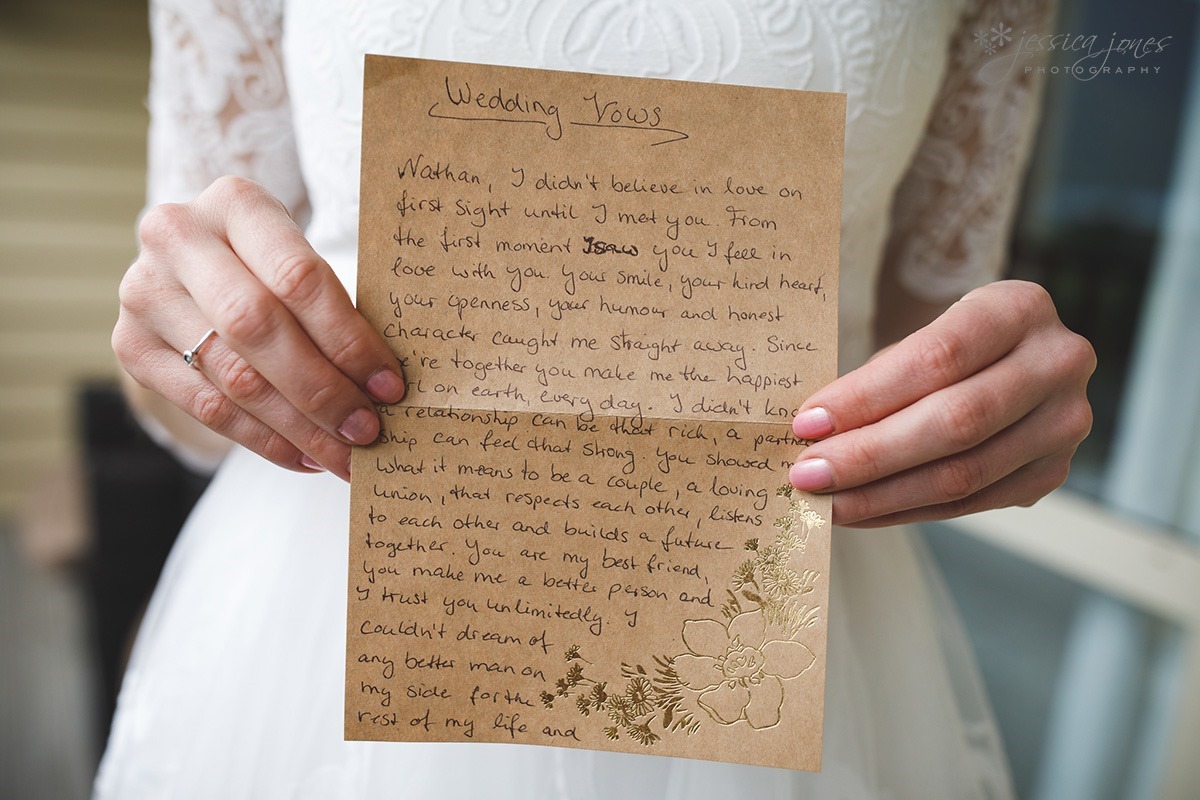 jessica jones
PHOTOGRAPHY
Wedding Vows
Nathan, I didn't believe in love on
first sight until I met you. From
the first moment I saw you I fell in
love with you. Your smile, your kind heart,
your openness, your humour and honest
character caught me straight away. Since
we're together you make me the happiest
girl on earth, every day. I didn't kno
a relationship can be that rich, a partner
ship can feel that strong. You showed m
what it means to be a couple, a loving
union, that respects each other, listens
to each other and builds a future
together. You are my best friend,
you make me a better person and
I trust you unlimitedly. I
couldn't dream of
any better man on
my side for the
rest of my life and